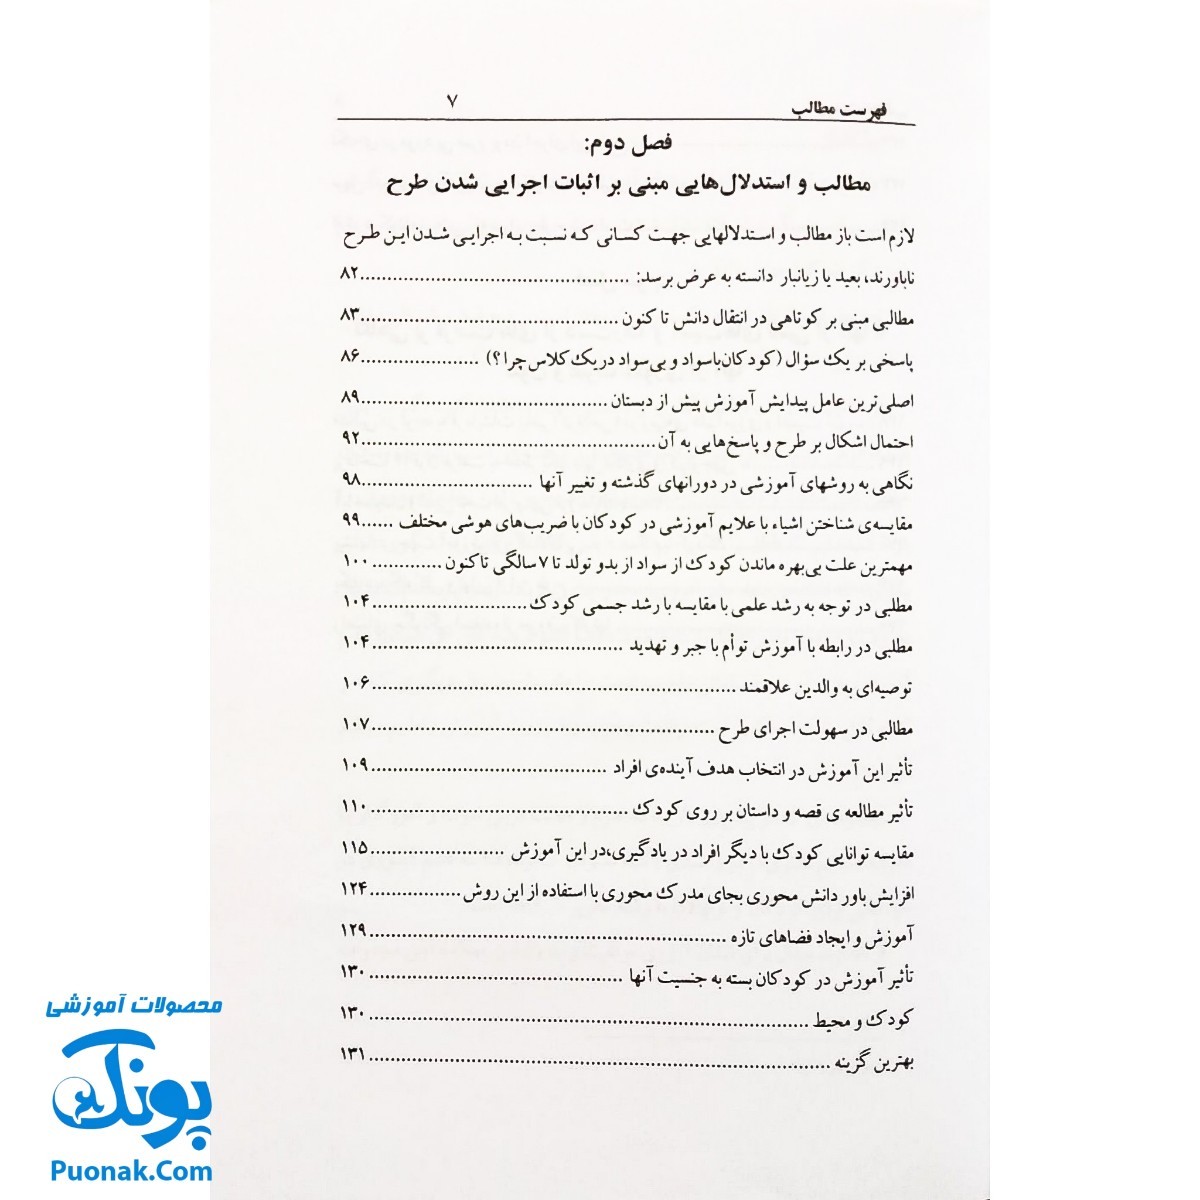 فهرست مطالب ۷
فصل دوم:
مطالب و استدلال‌هایی مبنی بر اثبات اجرایی شدن طرح
لازم است باز مطالب و استدلالهایی جهت کسانی که نسبت به اجرایی شدن این طرح
ناباورند، بعید یا زیانبار دانسته به عرض برسد: ..................................................۸۲
مطالبی مبنی بر کوتاهی در انتقال دانش تا کنون ................................................۸۳
پاسخی بر یک سؤال (کودکان باسواد و بی‌سواد در یک کلاس چرا؟) ......................۸۶
اصلی‌ترین عامل پیدایش آموزش پیش از دبستان..............................................۸۹
احتمال اشکال بر طرح و پاسخ‌هایی به آن.......................................................۹۲
نگاهی به روشهای آموزشی در دورانهای گذشته و تغییر آنها ................................۹۸
مقایسه‌ی شناختن اشیاء با علایم آموزشی در کودکان با ضریب‌های هوشی مختلف ......۹۹
مهمترین علت بی‌بهره ماندن کودک از سواد از بدو تولد تا ۷ سالگی تاکنون.............۱۰۰
مطلبی در توجه به رشد علمی با مقایسه با رشد جسمی کودک.............................۱۰۴
مطلبی در رابطه با آموزش توأم با جبر و تهدید ...............................................۱۰۴
توصیه‌ای به والدین علاقمند....................................................................۱۰۶
مطالبی در سهولت اجرای طرح ................................................................۱۰۷
تأثیر این آموزش در انتخاب هدف آینده‌ی افراد ............................................۱۰۹
تأثیر مطالعه ی قصه و داستان بر روی کودک ................................................۱۱۰
مقایسه توانایی کودک با دیگر افراد در یادگیری،در این آموزش .........................۱۱۵
افزایش باور دانش محوری بجای مدرک محوری با استفاده از این روش.................۱۲۴
آموزش و ایجاد فضاهای تازه ..................................................................۱۲۹
تأثیر آموزش در کودکان بسته به جنسیت آنها ...............................................۱۳۰
کودک و محیط ..................................................................................۱۳۰
بهترین گزینه ......................................................................................۱۳۱
محصولات آموزشی
پونک
Puonak.Com